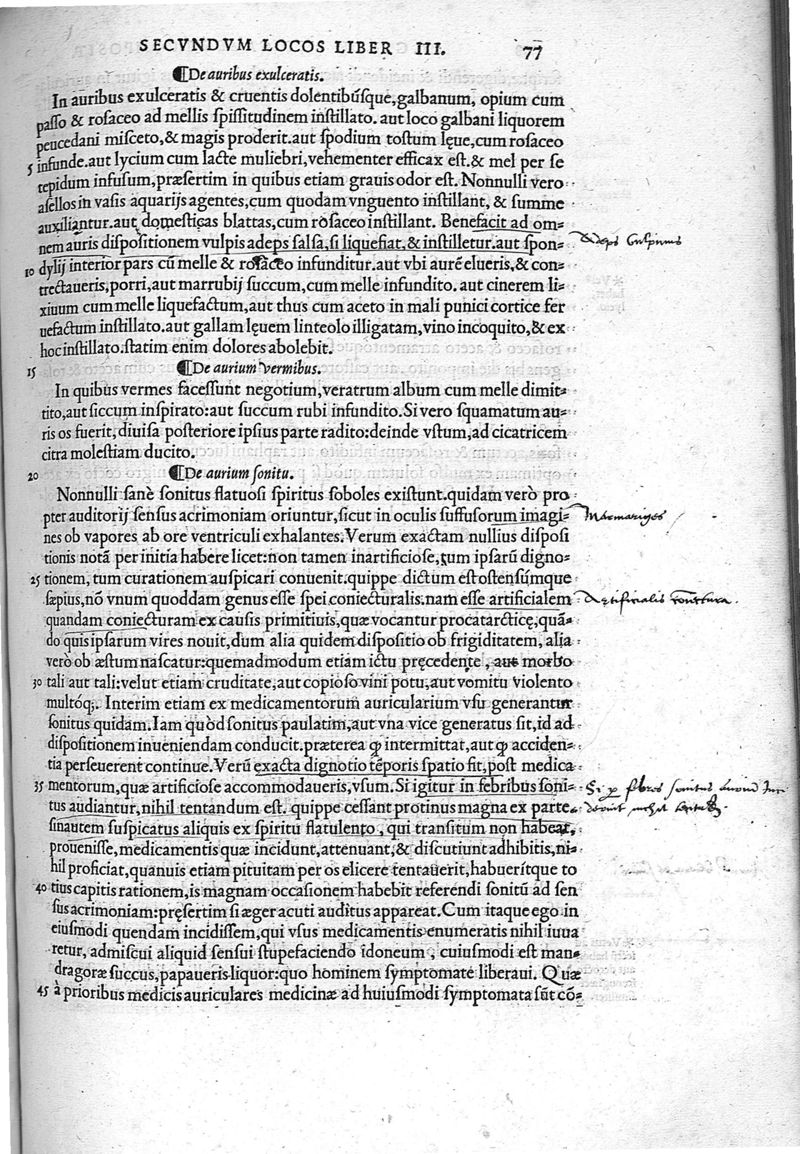 SECVNDVM LOCOS LIBER III. 77
¶De auribus exulceratis.
In auribus exulceratis & cruentis dolentibúsque, galbanum, opium cum
passo & rosaceo ad mellis spissitudinem instillato. aut loco galbani liquorem
peucedani misceto, & magis proderit. aut spodium tostum lęue, cum rosaceo
5 infunde. aut lycium cum lacte muliebri, vehementer efficax est. & mel per se
tepidum infusum, præsertim in quibus etiam grauis odor est. Nonnulli vero
asellos in vasis aquarijs agentes, cum quodam vnguento instillant, & summe
auxiliantur. aut domesticas blattas, cum rosaceo instillant. Benefacit ad om-
nem auris dispositionem vulpis adeps salsa, si liquefiat, & instilletur. aut spon- Adeps vulpinus
10 dylij interior pars cū melle & rosaceo infunditur. aut vbi aurē elueris, & con-
trectaueris, porri, aut marrubij succum, cum melle infundito. aut cinerem li-
xiuum cum melle liquefactum, aut thus cum aceto in mali punici cortice fer
uefactum instillato. aut gallam lęuem linteolo illigatam, vino incoquito, & ex
hoc instillato. statim enim dolores abolebit.
15 ¶De aurium vermibus.
In quibus vermes facessunt negotium, veratrum album cum melle dimit-
tito, aut siccum inspirato: aut succum rubi infundito. Si vero squamatum au-
ris os fuerit, diuisa posteriore ipsius parte radito: deinde vstum, ad cicatricem
citra molestiam ducito.
20 ¶De aurium sonitu.
Nonnulli sanè sonitus flatuosi spiritus soboles existunt. quidam verò pro
pter auditorij sensus acrimoniam oriuntur, sicut in oculis suffusorum imagi- Marmariges
nes ob vapores ab ore ventriculi exhalantes. Verum exactam nullius disposi
tionis notā per initia habere licet: non tamen inartificiose, tum ipsarū digno-
25 tionem, tum curationem auspicari conuenit. quippe dictum est ostensúmque
sæpius, nō vnum quoddam genus esse spei coniecturalis. nam esse artificialem Artificialis
quandam coniecturam ex causis primitiuis, quæ vocantur procatarcticę, quā-
do quis ipsarum vires nouit, dum alia quidem dispositio ob frigiditatem, alia
verò ob æstum nascatur: quemadmodum etiam ictu pręcedente, aut morbo
30 tali aut tali: velut etiam cruditate, aut copioso vini potu, aut vomitu violento
multóq;. Interim etiam ex medicamentorum auricularium vsu generantur
sonitus quidam. Iam quòd sonitus paulatim, aut vna vice generatus sit, id ad
dispositionem inueniendam conducit. præterea ꝙ intermittat, aut ꝙ acciden-
tia perseuerent continue. Verū exacta dignotio tēporis spatio fit, post medica
35 mentorum, quæ artificiose accommodaueris, vsum. Si igitur in febribus soni- Si febres sonitus
tus audiantur, nihil tentandum est, quippe cessant protinus magna ex parte.
sinautem suspicatus aliquis ex spiritu flatulento, qui transitum non habeat,
prouenisse, medicamentis quæ incidunt, attenuant, & discutiunt adhibitis, ni-
hil proficiat, quanuis etiam pituitam per os elicere tentauerit, habuerítque to
40 tius capitis rationem, is magnam occasionem habebit referendi sonitū ad sen
sus acrimoniam: pręsertim si æger acuti auditus appareat. Cum itaque ego in
eiusmodi quendam incidissem, qui vsus medicamentis enumeratis nihil iuua
retur, admiscui aliquid sensui stupefaciendo idoneum, cuiusmodi est man-
dragoræ succus, papaueris liquor: quo hominem symptomate liberaui. Quæ
45 à prioribus medicis auriculares medicinæ ad huiusmodi symptomata sūt cō-